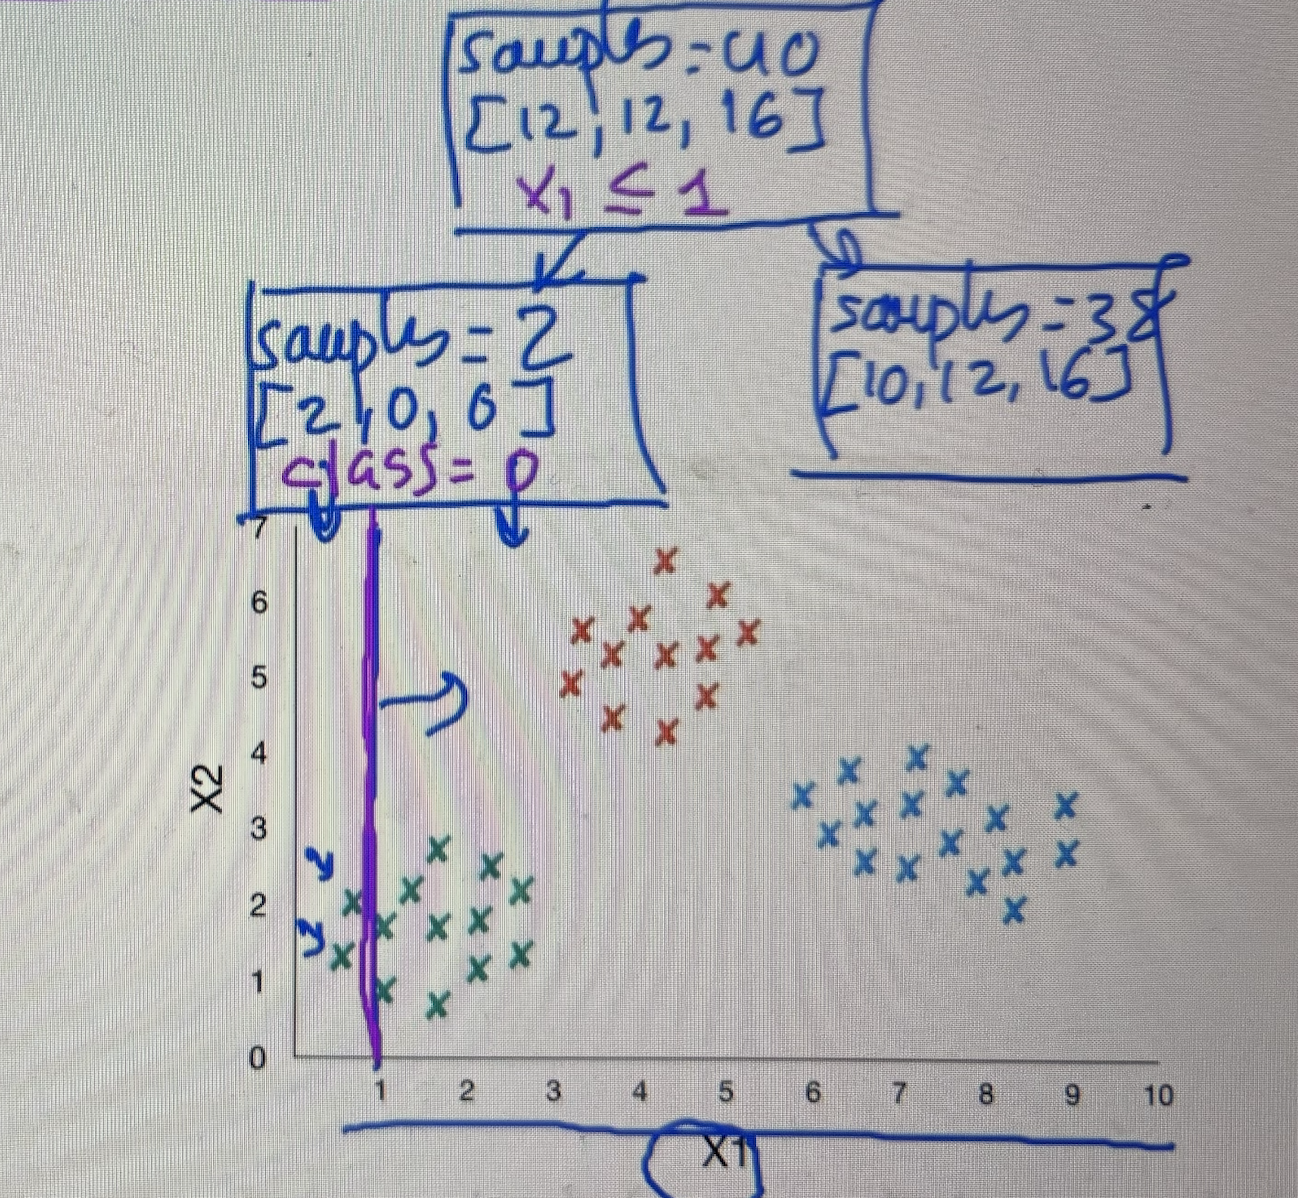 samples = 40
[12, 12, 16]
x1 ≤ 1
samples = 2
[2, 0, 0]
class = 0
samples = 38
[10, 12, 16]
7
6
5
4
3
2
1
0
X2
1 2 3 4 5 6 7 8 9 10
X1